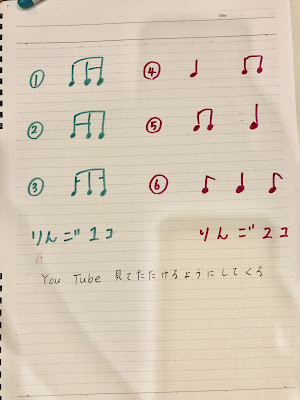 ① ④
② ⑤
③ ⑥
りんご 1コ りんご 2コ
You Tube 見てたたけるようにしてくる